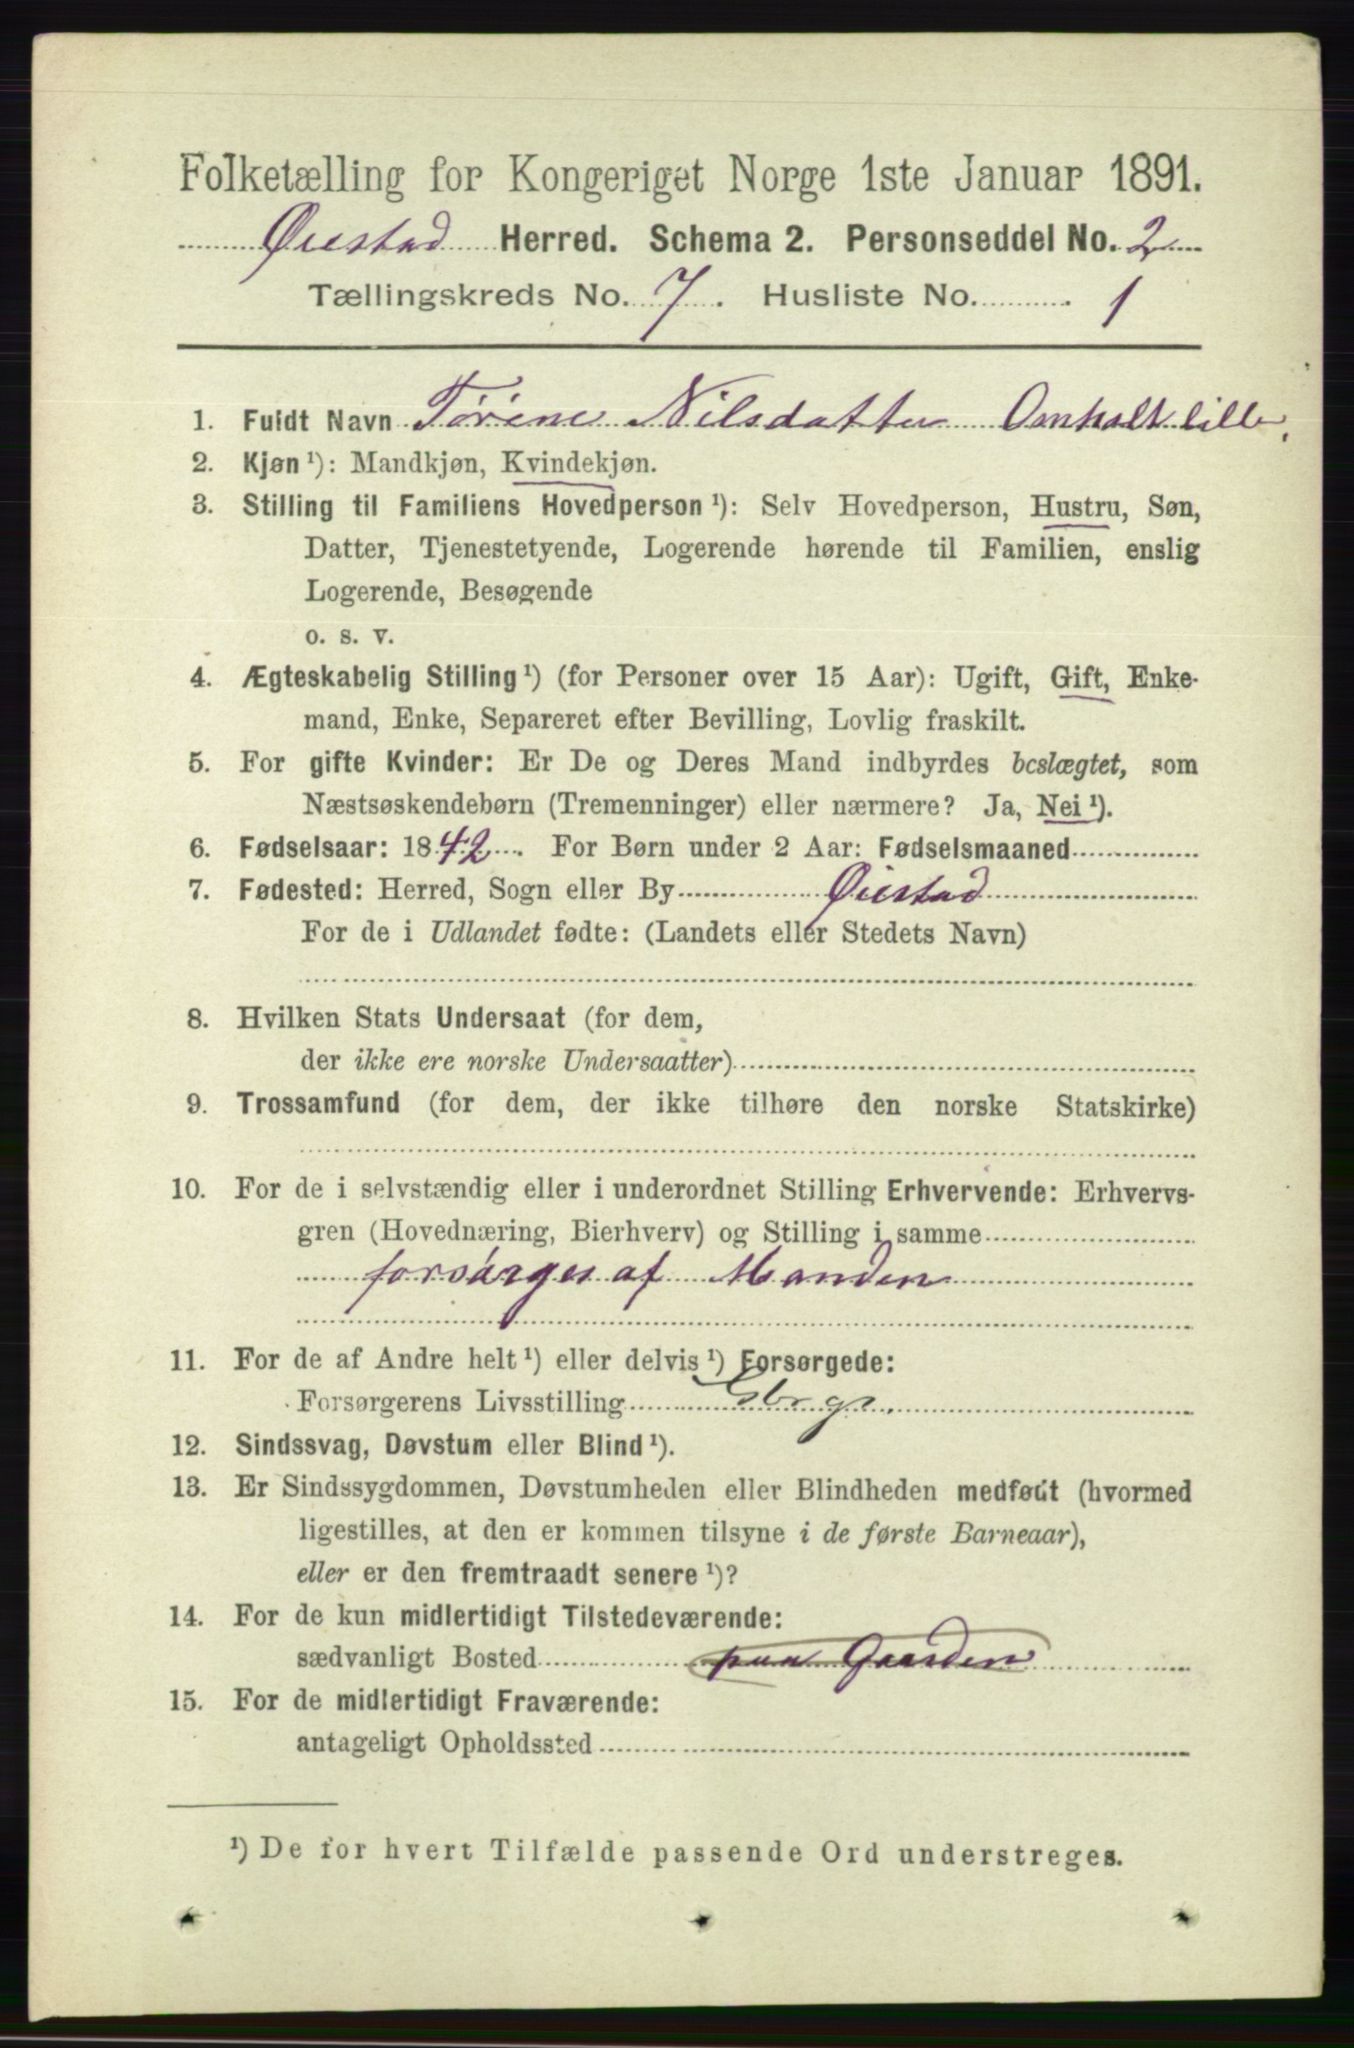 Folketælling for Kongeriget Norge 1ste Januar 1891.
Øiestad Herred. Schema 2. Personseddel No. 2
Tællingskreds No. 7. Husliste No. 1
1. Fuldt Navn Tørine Nilsdatter Omholt lille.
2. Kjøn ¹): Mandkjøn, Kvindekjøn.
3. Stilling til Familiens Hovedperson ¹): Selv Hovedperson, Hustru, Søn,
Datter, Tjenestetyende, Logerende hørende til Familien, enslig
Logerende, Besøgende
o. s. v.
4. Ægteskabelig Stilling ¹) (for Personer over 15 Aar): Ugift, Gift, Enke-
mand, Enke, Separeret efter Bevilling, Lovlig fraskilt.
5. For gifte Kvinder: Er De og Deres Mand indbyrdes beslægtet, som
Næstsøskendebørn (Tremenninger) eller nærmere? Ja, Nei ¹).
6. Fødselsaar: 1842. For Børn under 2 Aar: Fødselsmaaned
7. Fødested: Herred, Sogn eller By Øiestad
For de i Udlandet fødte: (Landets eller Stedets Navn)
8. Hvilken Stats Undersaat (for dem,
der ikke ere norske Undersaatter)
9. Trossamfund (for dem, der ikke tilhøre den norske Statskirke)
10. For de i selvstændig eller i underordnet Stilling Erhvervende: Erhvervs-
gren (Hovednæring, Bierhverv) og Stilling i samme
forsørges af Manden
11. For de af Andre helt ¹) eller delvis ¹) Forsørgede:
Forsørgerens Livsstilling Gbrgr.
12. Sindssvag, Døvstum eller Blind ¹).
13. Er Sindssygdommen, Døvstumheden eller Blindheden medfødt (hvormed
ligestilles, at den er kommen tilsyne i de første Barneaar),
eller er den fremtraadt senere ¹)?
14. For de kun midlertidigt Tilstedeværende:
sædvanligt Bosted paa Gaarden
15. For de midlertidigt Fraværende:
antageligt Opholdssted
¹) De for hvert Tilfælde passende Ord understreges.